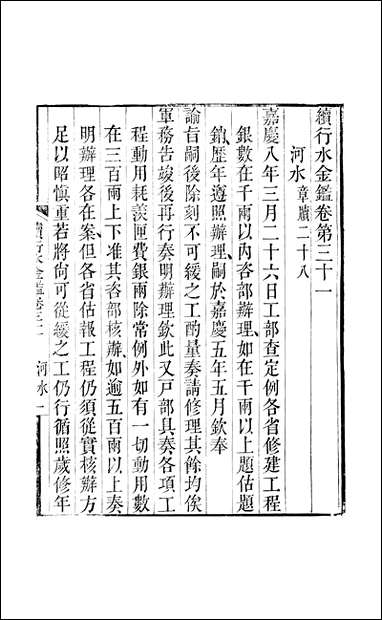 續行水金鑑卷第三十一
河水 章牘二十八
嘉慶八年三月二十六日工部查定例各省修建工程
銀數在千兩以內咨部辦理如在千兩以上題估題
銷歷年遵照辦理嗣於嘉慶五年五月欽奉
諭旨嗣後除刻不可緩之工酌量奏請修理其餘均俟
軍務告竣後再行奏明辦理欽此又戸部具奏各項工
程動用耗羨匣費銀兩除常例外如有一切動用數
在三百兩上下准其咨部核辦如逾五百兩以上奏
明辦理各在案但各省估報工程仍須從實核辦方
足以昭慎重若將尙可從緩之工仍行循照歲修年
續行水金鑑卷三一 河水 一